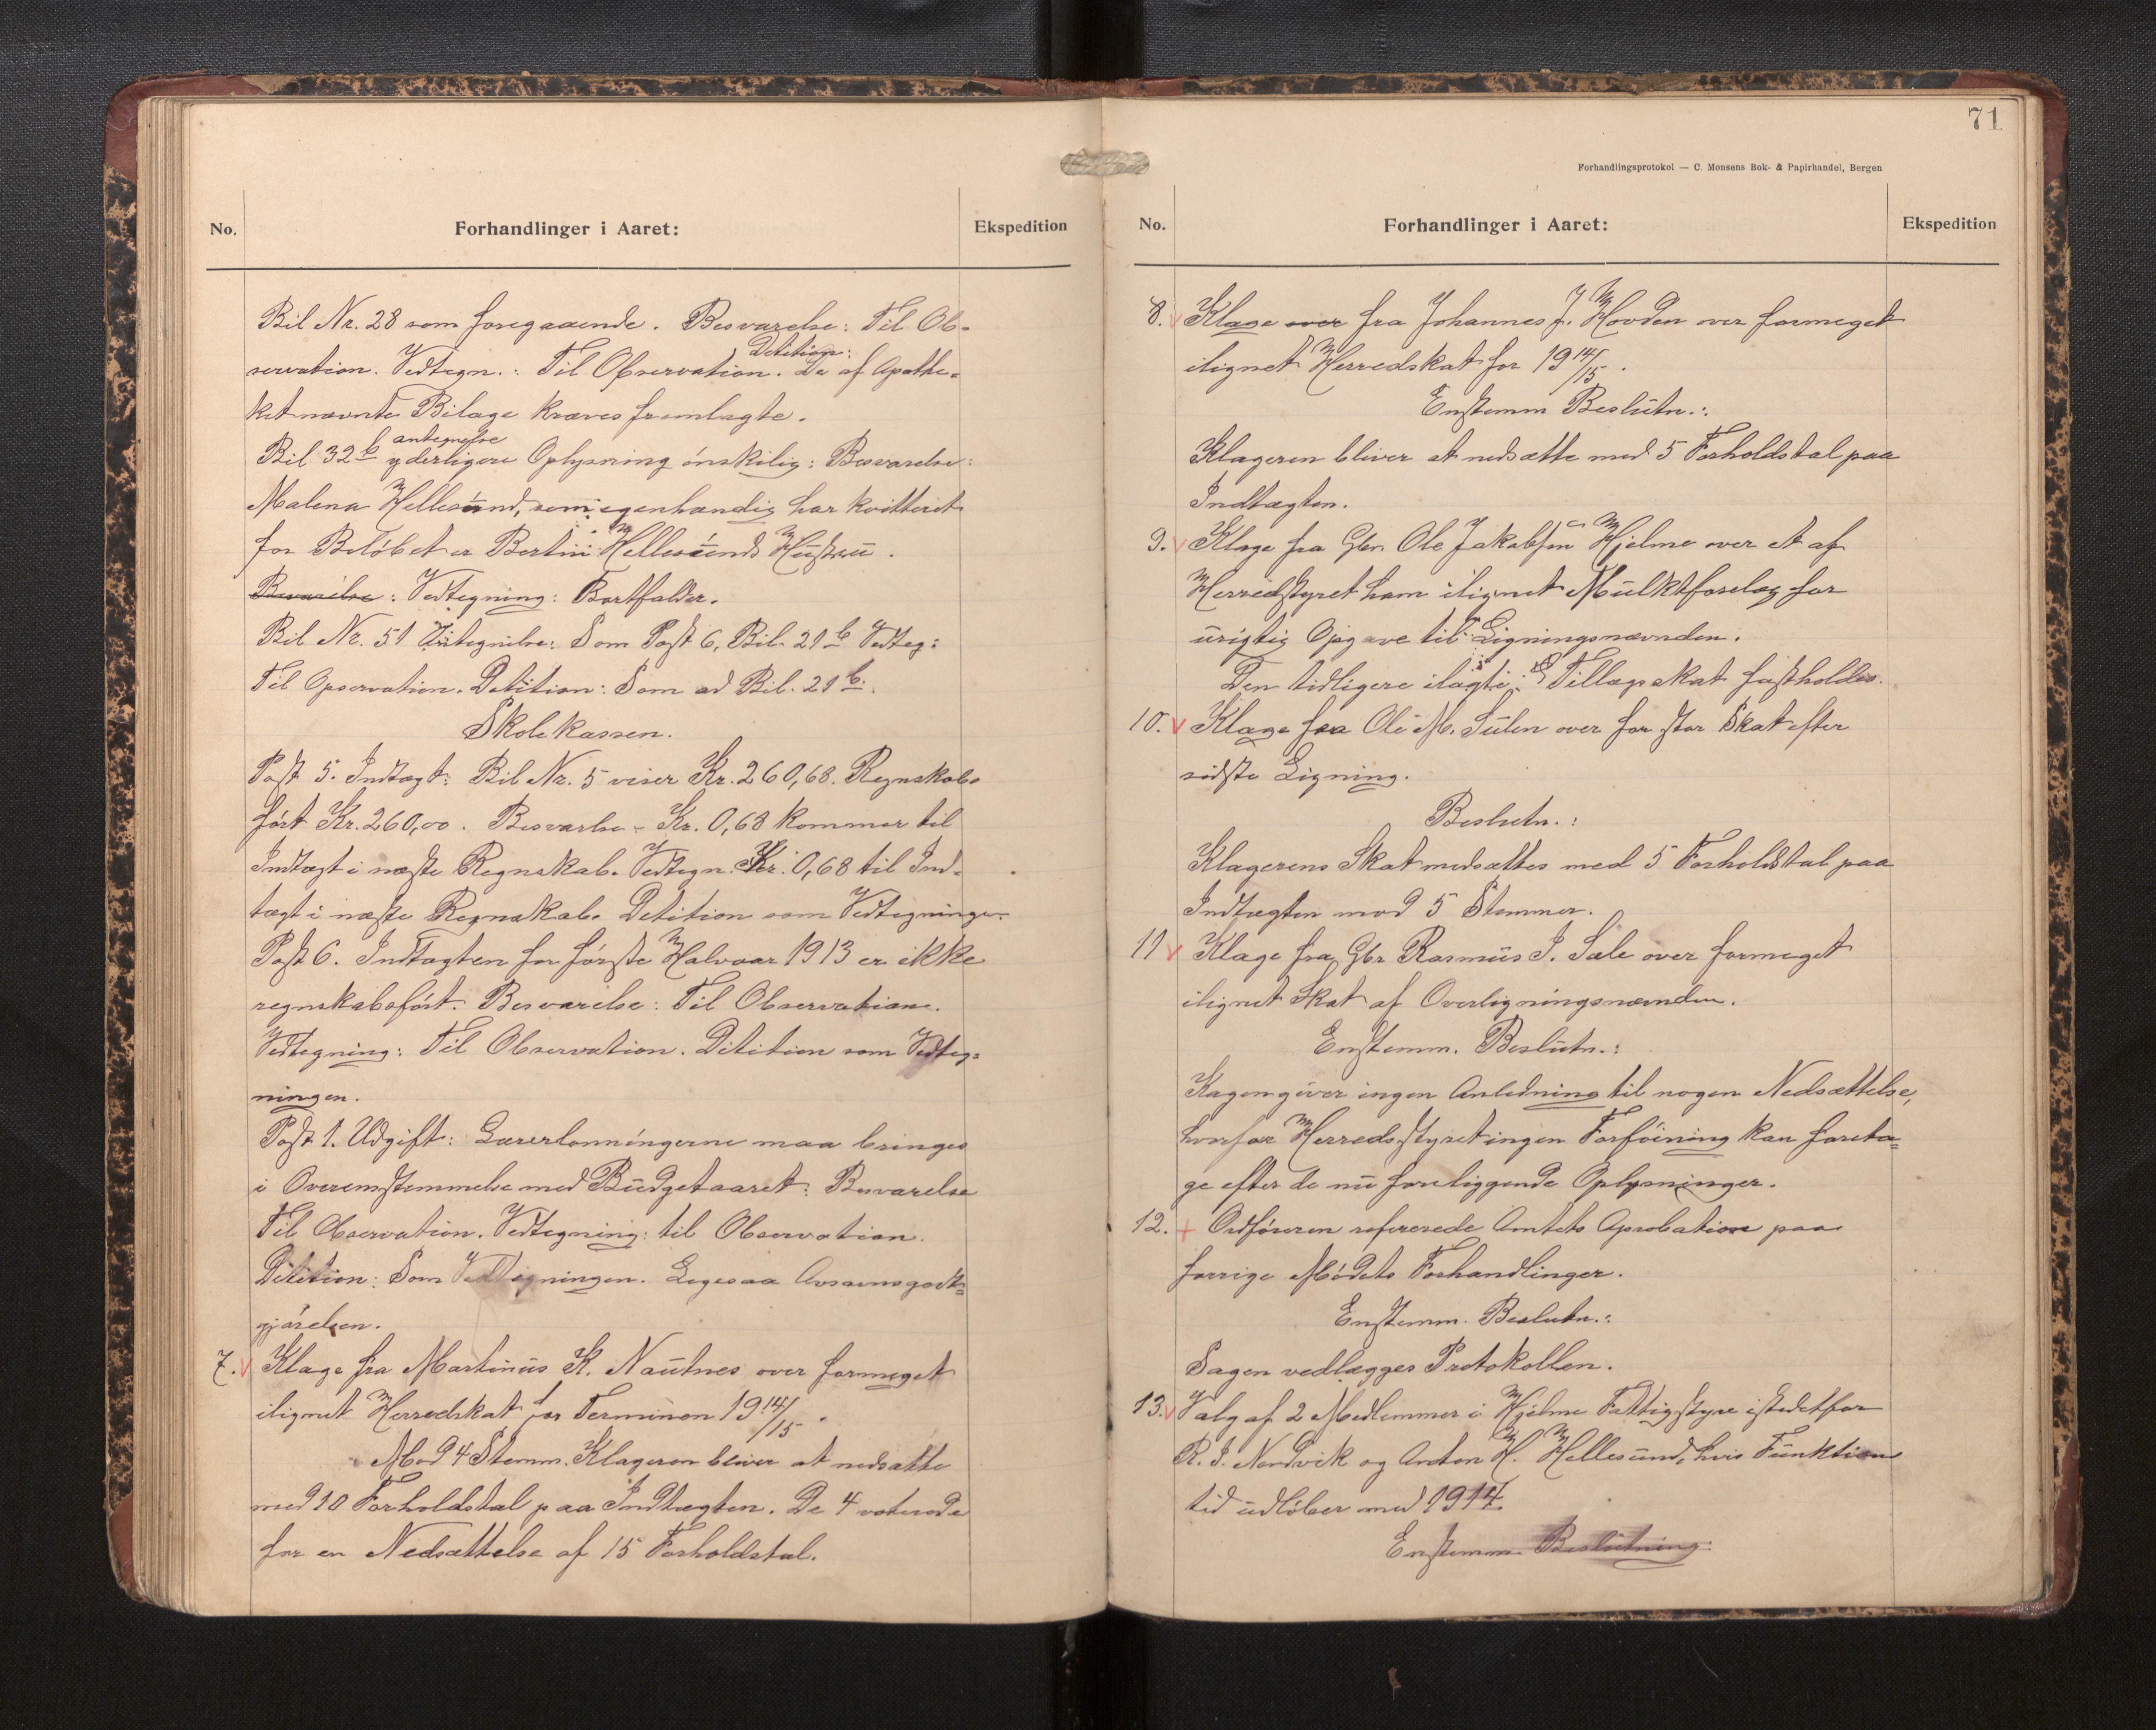 No.
Forhandlinger i Aaret:
Ekspedition
Bil Nr. 28 som foregaaende. Besvarelse: Til Ob-
servation. Vedtegn.: Til Observation. Detition: De af Apothe-
ket nævnte Bilage kræves fremlagte.
Bil 32 b antegnelse yderligere Oplysning ønskelig: Besvarelse:
Malena Hellesund, som egenhændig har kvitteret
for Beløbet er Bertin Hellesunds Hustru.
Besvarelse: Vedtegning: Bortfalder.
Bil Nr. 51 Antegnelse: Som Post 6, Bil. 21 b Vedteg:
Til Opservation. Detition: Som ad Bil. 21 b.
Skolekassen.
Post 5. Indtægt: Bil Nr. 5 viser Kr. 260,68. Regnskabs
ført Kr. 260,00. Besvarlse - Kr. 0,68 kommer til
Indtægt i næste Regnskab. Vedtegn. Kr. 0,68 til Ind-
tægt i næste Regnskab. Detition som Vedtegningen.
Post 6. Indtægten for første Halvaar 1913 er ikke
regnskabsført. Besvarelse: Til Observation.
Vedtegning: Til Observation. Ditition som Vedteg-
ningen.
Post 1. Udgift: Lærerlønningerne maa bringes
i Overenstemmelse med Budgetaaret: Besvarelse
Til Observation. Vedtegning: til Observation.
Ditition: Som Vedtegningen. Ligesaa Avsavnsgodt-
gjørelsen.
7. Klage fra Martinus K. Nautnes over formeget
ilignet Herredskat for Terminen 19 14/15.
Mod 4 Stemm. Klageren bliver at nedsætte
med 10 Forholdstal paa Indtægten. De 4 voterede
for en Nedsættelse af 15 Forholdstal.
71
Forhandlingsprotokol — C. Monsens Bok- & Papirhandel, Bergen
No.
Forhandlinger i Aaret:
Ekspedition
8. Klage over fra Johannes J. Hovden over formeget
ilignet Herredskat for 19 14/15.
Enstemm Beslutn.:
Klageren bliver at nedsætte med 5 Forholdstal paa
Indtægten.
9. Klage fra Gbr. Ole Jakobsen Hjelme over et af
Herredstyret ham ilignet Mulktforelæg for
urigtig Opgave til Ligningsnævnden.
Den tidligere ilagte Tillægsskat fastholdes.
10. Klage fra Ole M. Sulen over for stor Skat efter
sidste Ligning.
Beslutn.:
Klagerens Skat nedsættes med 5 Forholdstal paa
Indtægten mod 5 Stemmer.
11 Klage fra Gbr Rasmus I. Sæle over formeget
ilignet Skat af Overligningsnævnden.
Enstemm. Beslutn.:
Kagen giver ingen Anledning til nogen Nedsættelse,
hvorfor Herredsstyret ingen Forføining kan foreta-
ge efter de nu foreliggende Oplysninger.
12. + Ordføreren refererede Amtets Aprobation paa
forrige Mødets Forhandlinger.
Enstemm. Beslutn.:
Sagen vedlægges Protokollen.
13. Valg af 2 Medlemmer i Hjelme Fattigstyre istedetfor
R. I. Nordvik og Anton H. Hellesund, hvis Funktions
tid udløber med 1914.
Enstemm. Beslutning: